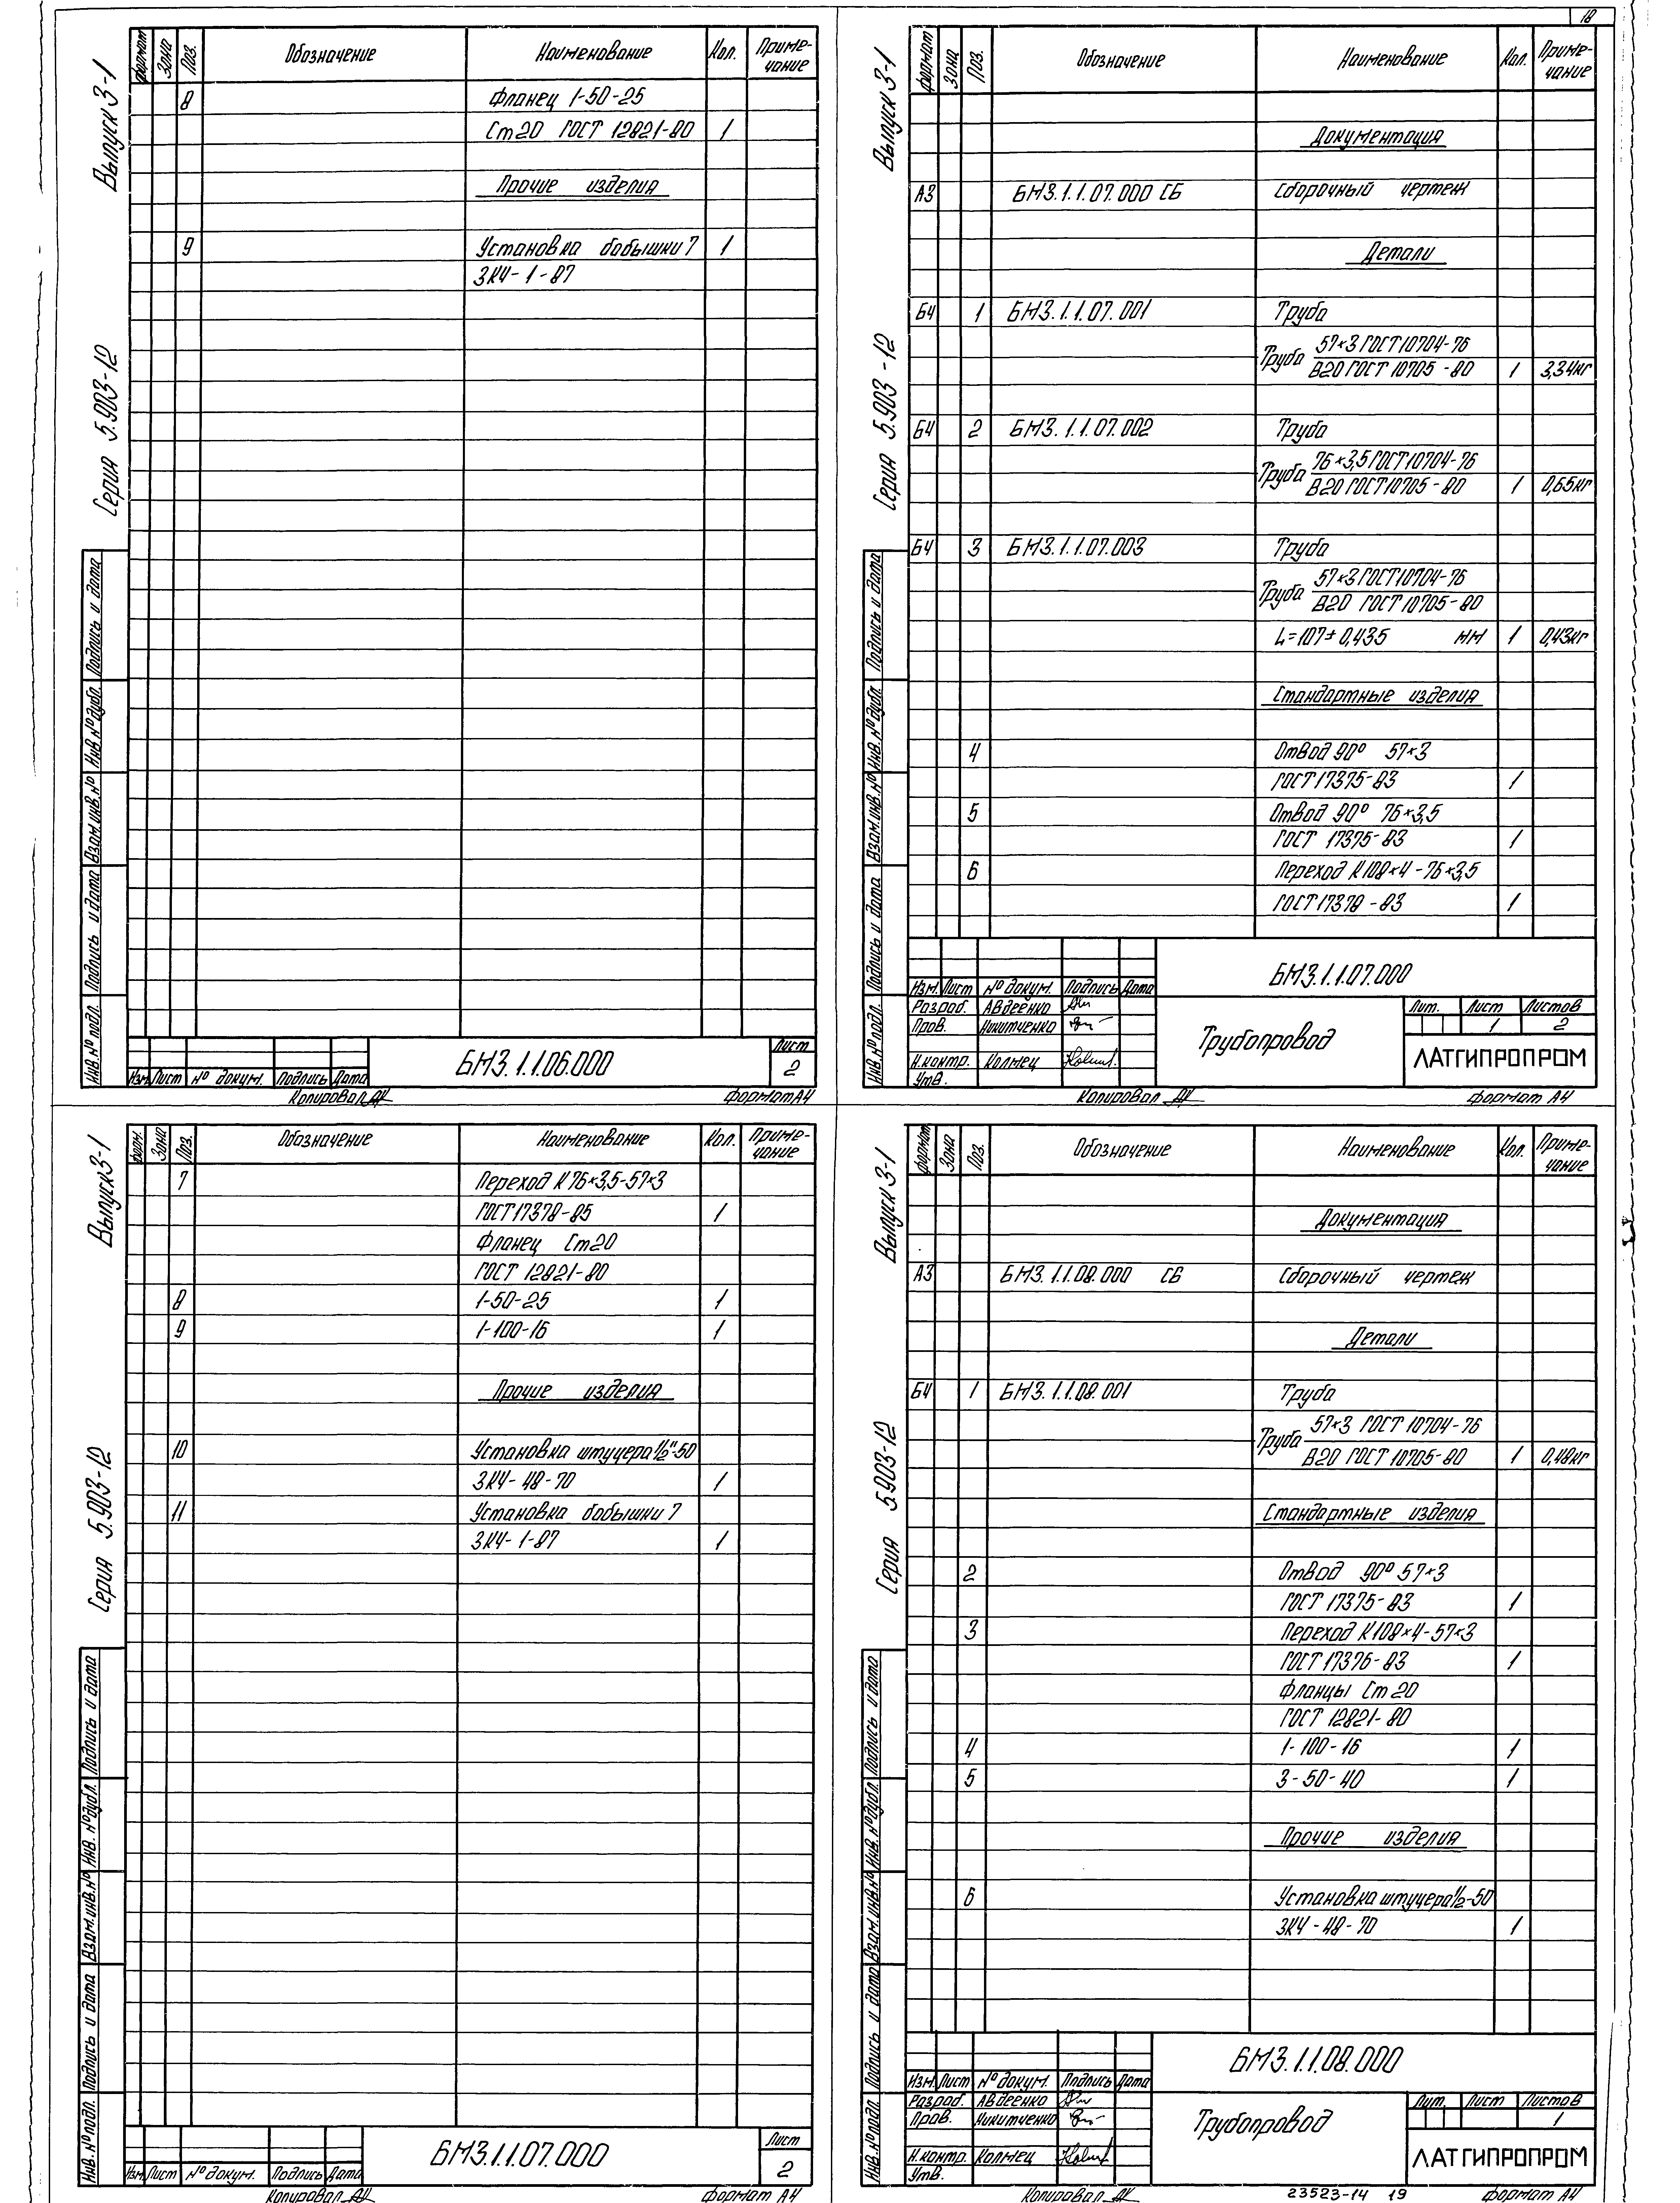 18
Выпуск 3-1
Серия 5.903-12
Формат Зона Поз. Обозначение Наименование Кол. Приме-
чание
8 Фланец 1-50-25
Ст20 ГОСТ 12821-80 1
Прочие изделия
9 Установка бобышки 7 1
ЗК4-1-87
Инв.№ подл. Подпись и дата Взам.инв.№ Инв.№ дубл. Подпись и дата
Изм. Лист № докум. Подпись Дата
БМЗ.1.1.06.000
Лист
2
Копировал
Формат А4
Выпуск 3-1
Серия 5.903-12
Формат Зона Поз. Обозначение Наименование Кол. Приме-
чание
Документация
А3 БМЗ.1.1.07.000 СБ Сборочный чертеж
Детали
БЧ 1 БМЗ.1.1.07.001 Труба
Труба 57×3 ГОСТ 10704-76
В20 ГОСТ 10705-80 1 3,34кг
БЧ 2 БМЗ.1.1.07.002 Труба
Труба 76×3,5 ГОСТ 10704-76
В20 ГОСТ 10705-80 1 0,65кг
БЧ 3 БМЗ.1.1.07.003 Труба
Труба 57×3 ГОСТ 10704-76
В20 ГОСТ 10705-80
L=107±0,435 мм 1 0,43кг
Стандартные изделия
4 Отвод 90° 57×3
ГОСТ 17375-83 1
5 Отвод 90° 76×3,5
ГОСТ 17375-83 1
6 Переход К108×4-76×3,5
ГОСТ 17378-83 1
Инв.№ подл. Подпись и дата Взам.инв.№ Инв.№ дубл. Подпись и дата
БМЗ.1.1.07.000
Изм. Лист № докум. Подпись Дата
Разраб. Авдеенко
Пров. Никитченко
Н.контр. Колмец
Утв.
Трубопровод
Лит. Лист Листов
1 2
ЛАТГИПРОПРОМ
Копировал
Формат А4
Выпуск 3-1
Серия 5.903-12
Форм. Зона Поз. Обозначение Наименование Кол. Приме-
чание
7 Переход К76×3,5-57×3
ГОСТ 17378-85 1
Фланец Ст20
ГОСТ 12821-80
8 1-50-25 1
9 1-100-16 1
Прочие изделия
10 Установка штуцера 1/2"-50
ЗК4-48-70 1
11 Установка бобышки 7
ЗК4-1-87 1
Инв.№ подл. Подпись и дата Взам.инв.№ Инв.№ дубл. Подпись и дата
Изм. Лист № докум. Подпись Дата
БМЗ.1.1.07.000
Лист
2
Копировал
Формат А4
Выпуск 3-1
Серия 5.903-12
Формат Зона Поз. Обозначение Наименование Кол. Приме-
чание
Документация
А3 БМЗ.1.1.08.000 СБ Сборочный чертеж
Детали
БЧ 1 БМЗ.1.1.08.001 Труба
Труба 57×3 ГОСТ 10704-76
В20 ГОСТ 10705-80 1 0,48кг
Стандартные изделия
2 Отвод 90° 57×3
ГОСТ 17375-83 1
3 Переход К108×4-57×3
ГОСТ 17376-83 1
Фланцы Ст20
ГОСТ 12821-80
4 1-100-16 1
5 3-50-40 1
Прочие изделия
6 Установка штуцера 1/2-50
ЗК4-48-70 1
Инв.№ подл. Подпись и дата Взам.инв.№ Инв.№ дубл. Подпись и дата
БМЗ.1.1.08.000
Изм. Лист № докум. Подпись Дата
Разраб. Авдеенко
Пров. Никитченко
Н.контр. Колмец
Утв.
Трубопровод
Лит. Лист Листов
1
ЛАТГИПРОПРОМ
Копировал
23523-14 19
Формат А4